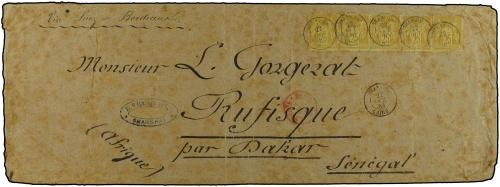 Via Suez - Bordeaux
Monsieur L. Gorgerat
Rufisque
(Afrique)
par Dakar
Sénégal
SHANGHAI